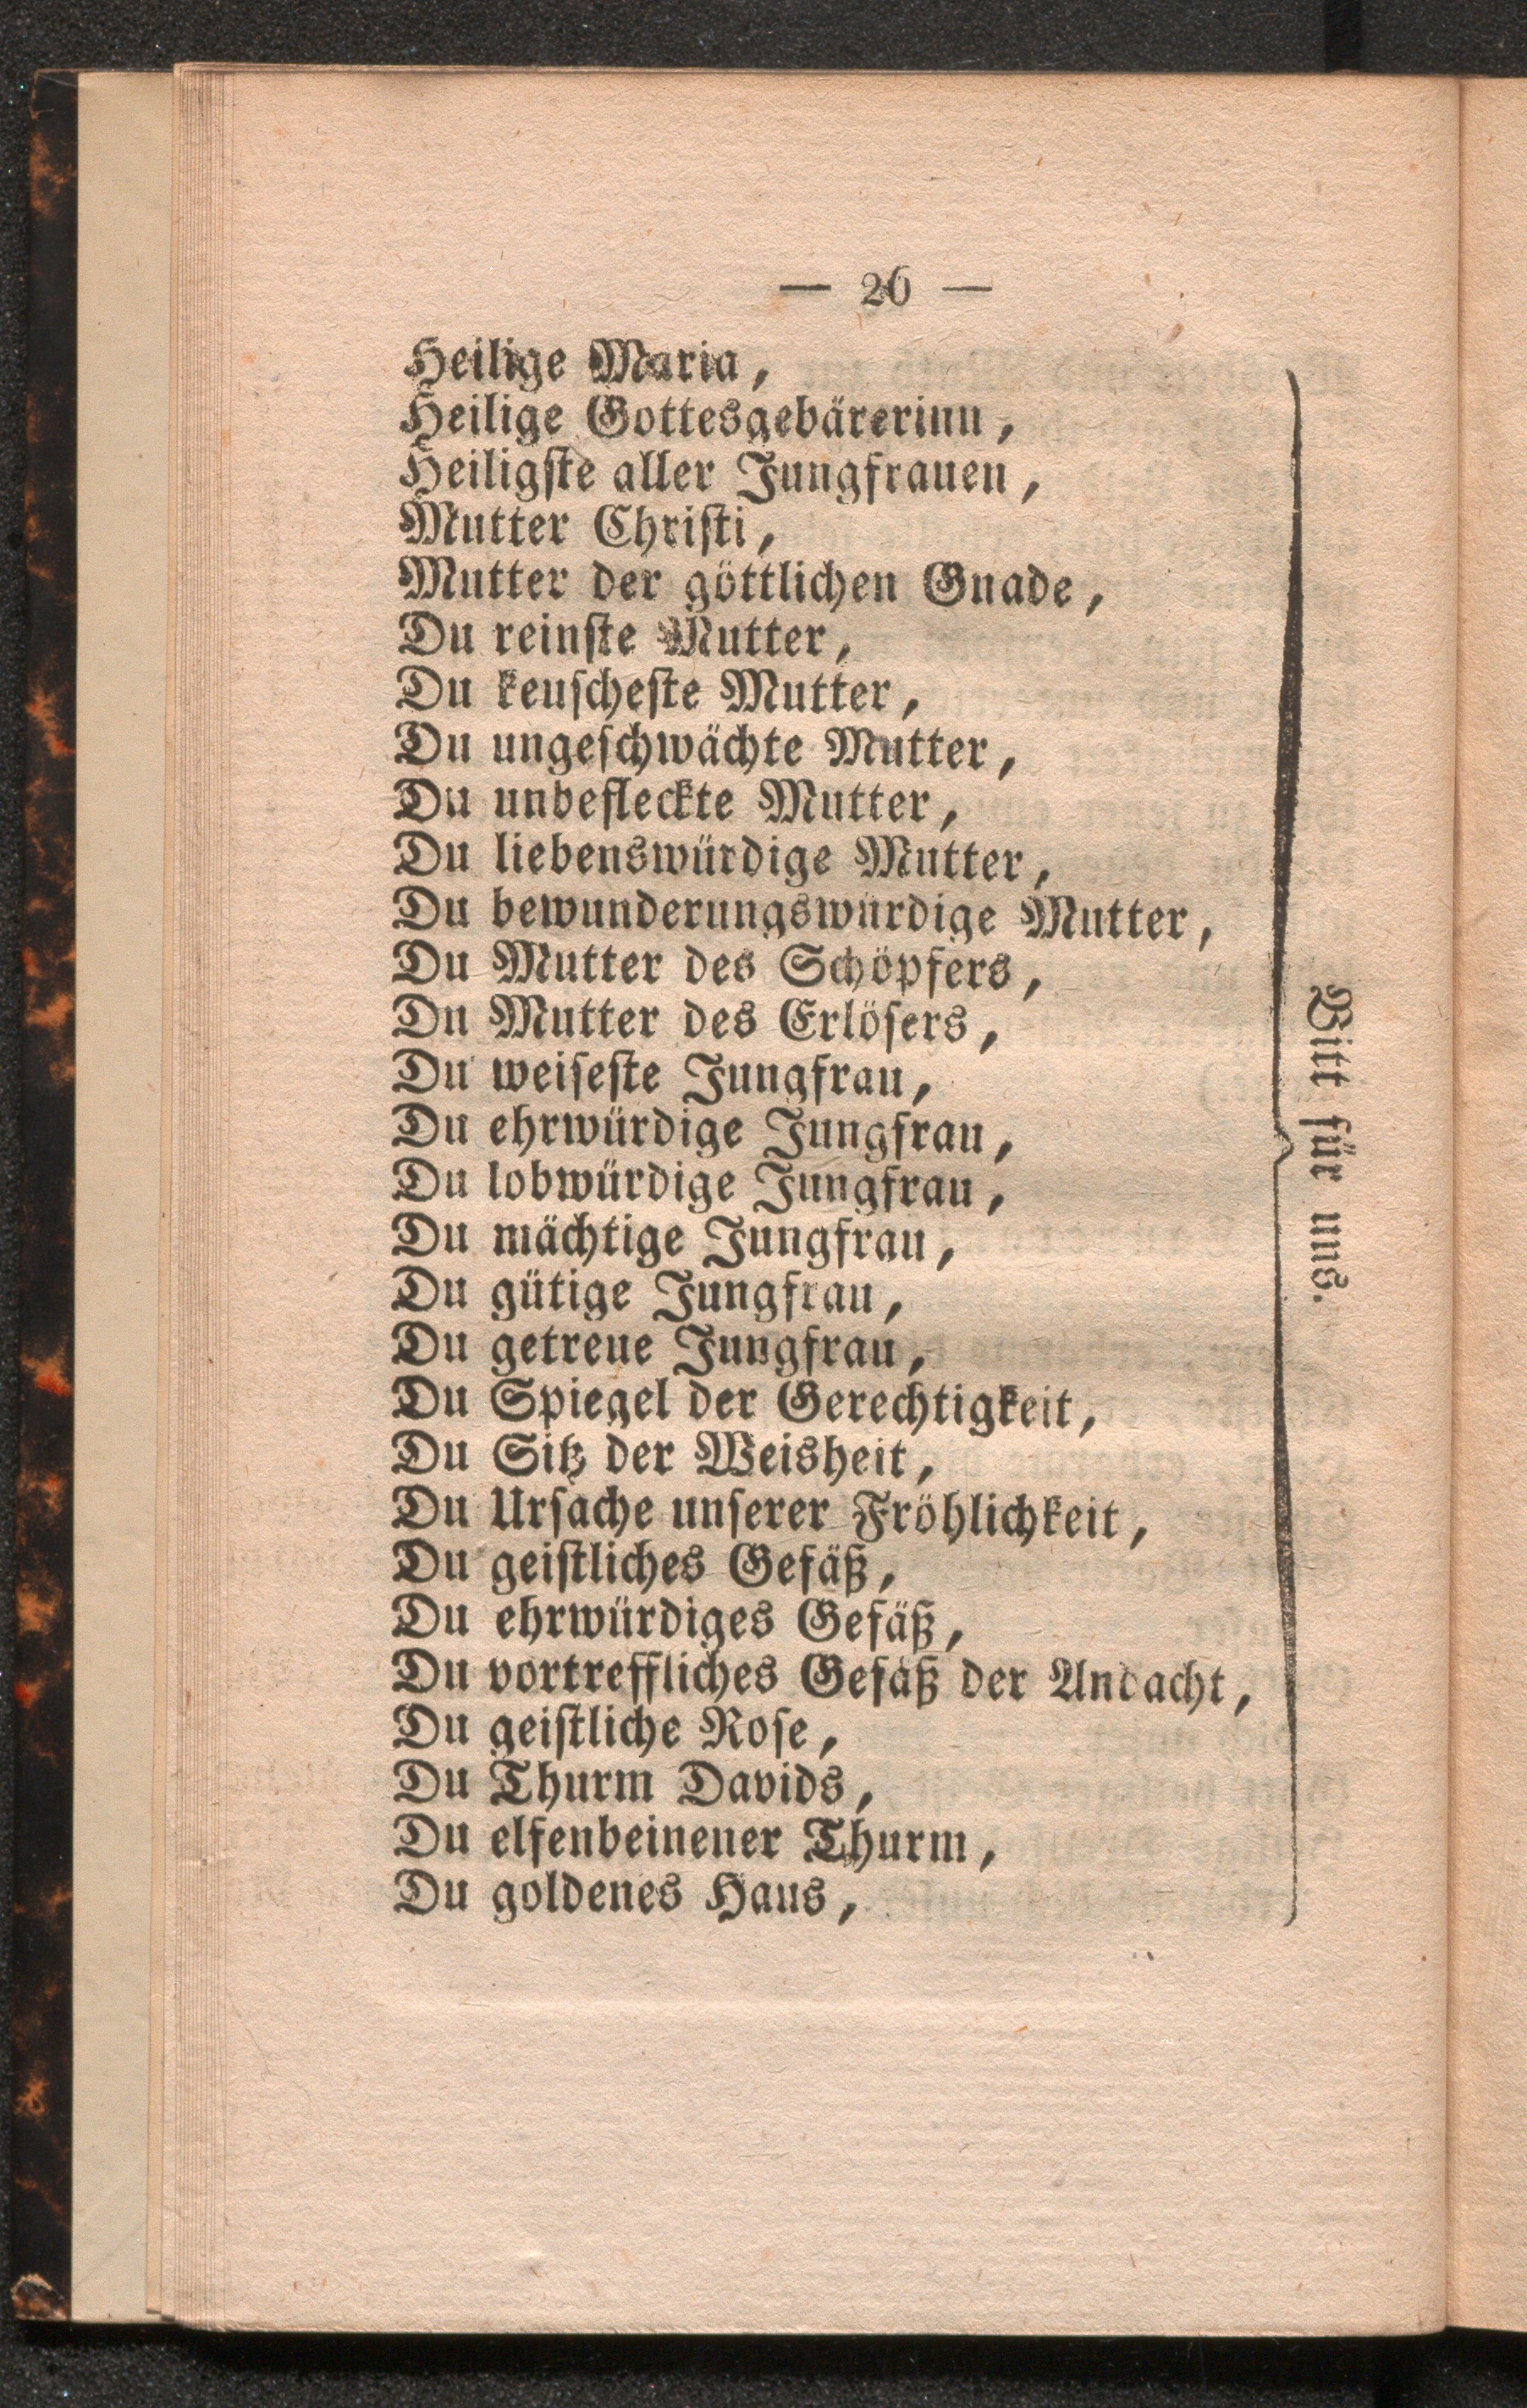 — 26 —
Heilige Maria,
Heilige Gottesgebärerinn,
Heiligste aller Jungfrauen,
Mutter Christi,
Mutter der göttlichen Gnade,
Du reinste Mutter,
Du keuscheste Mutter,
Du ungeschwächte Mutter,
Du unbefleckte Mutter,
Du liebenswürdige Mutter,
Du bewunderungswürdige Mutter,
Du Mutter des Schöpfers,
Du Mutter des Erlösers,
Du weiseste Jungfrau,
Du ehrwürdige Jungfrau,
Du lobwürdige Jungfrau,
Du mächtige Jungfrau,
Du gütige Jungfrau,
Du getreue Jungfrau,
Du Spiegel der Gerechtigkeit,
Du Sitz der Weisheit,
Du Ursache unserer Fröhlichkeit,
Du geistliches Gefäß,
Du ehrwürdiges Gefäß,
Du vortreffliches Gefäß der Andacht,
Du geistliche Rose,
Du Thurm Davids,
Du elfenbeinener Thurm,
Du goldenes Haus,
Bitt für uns.